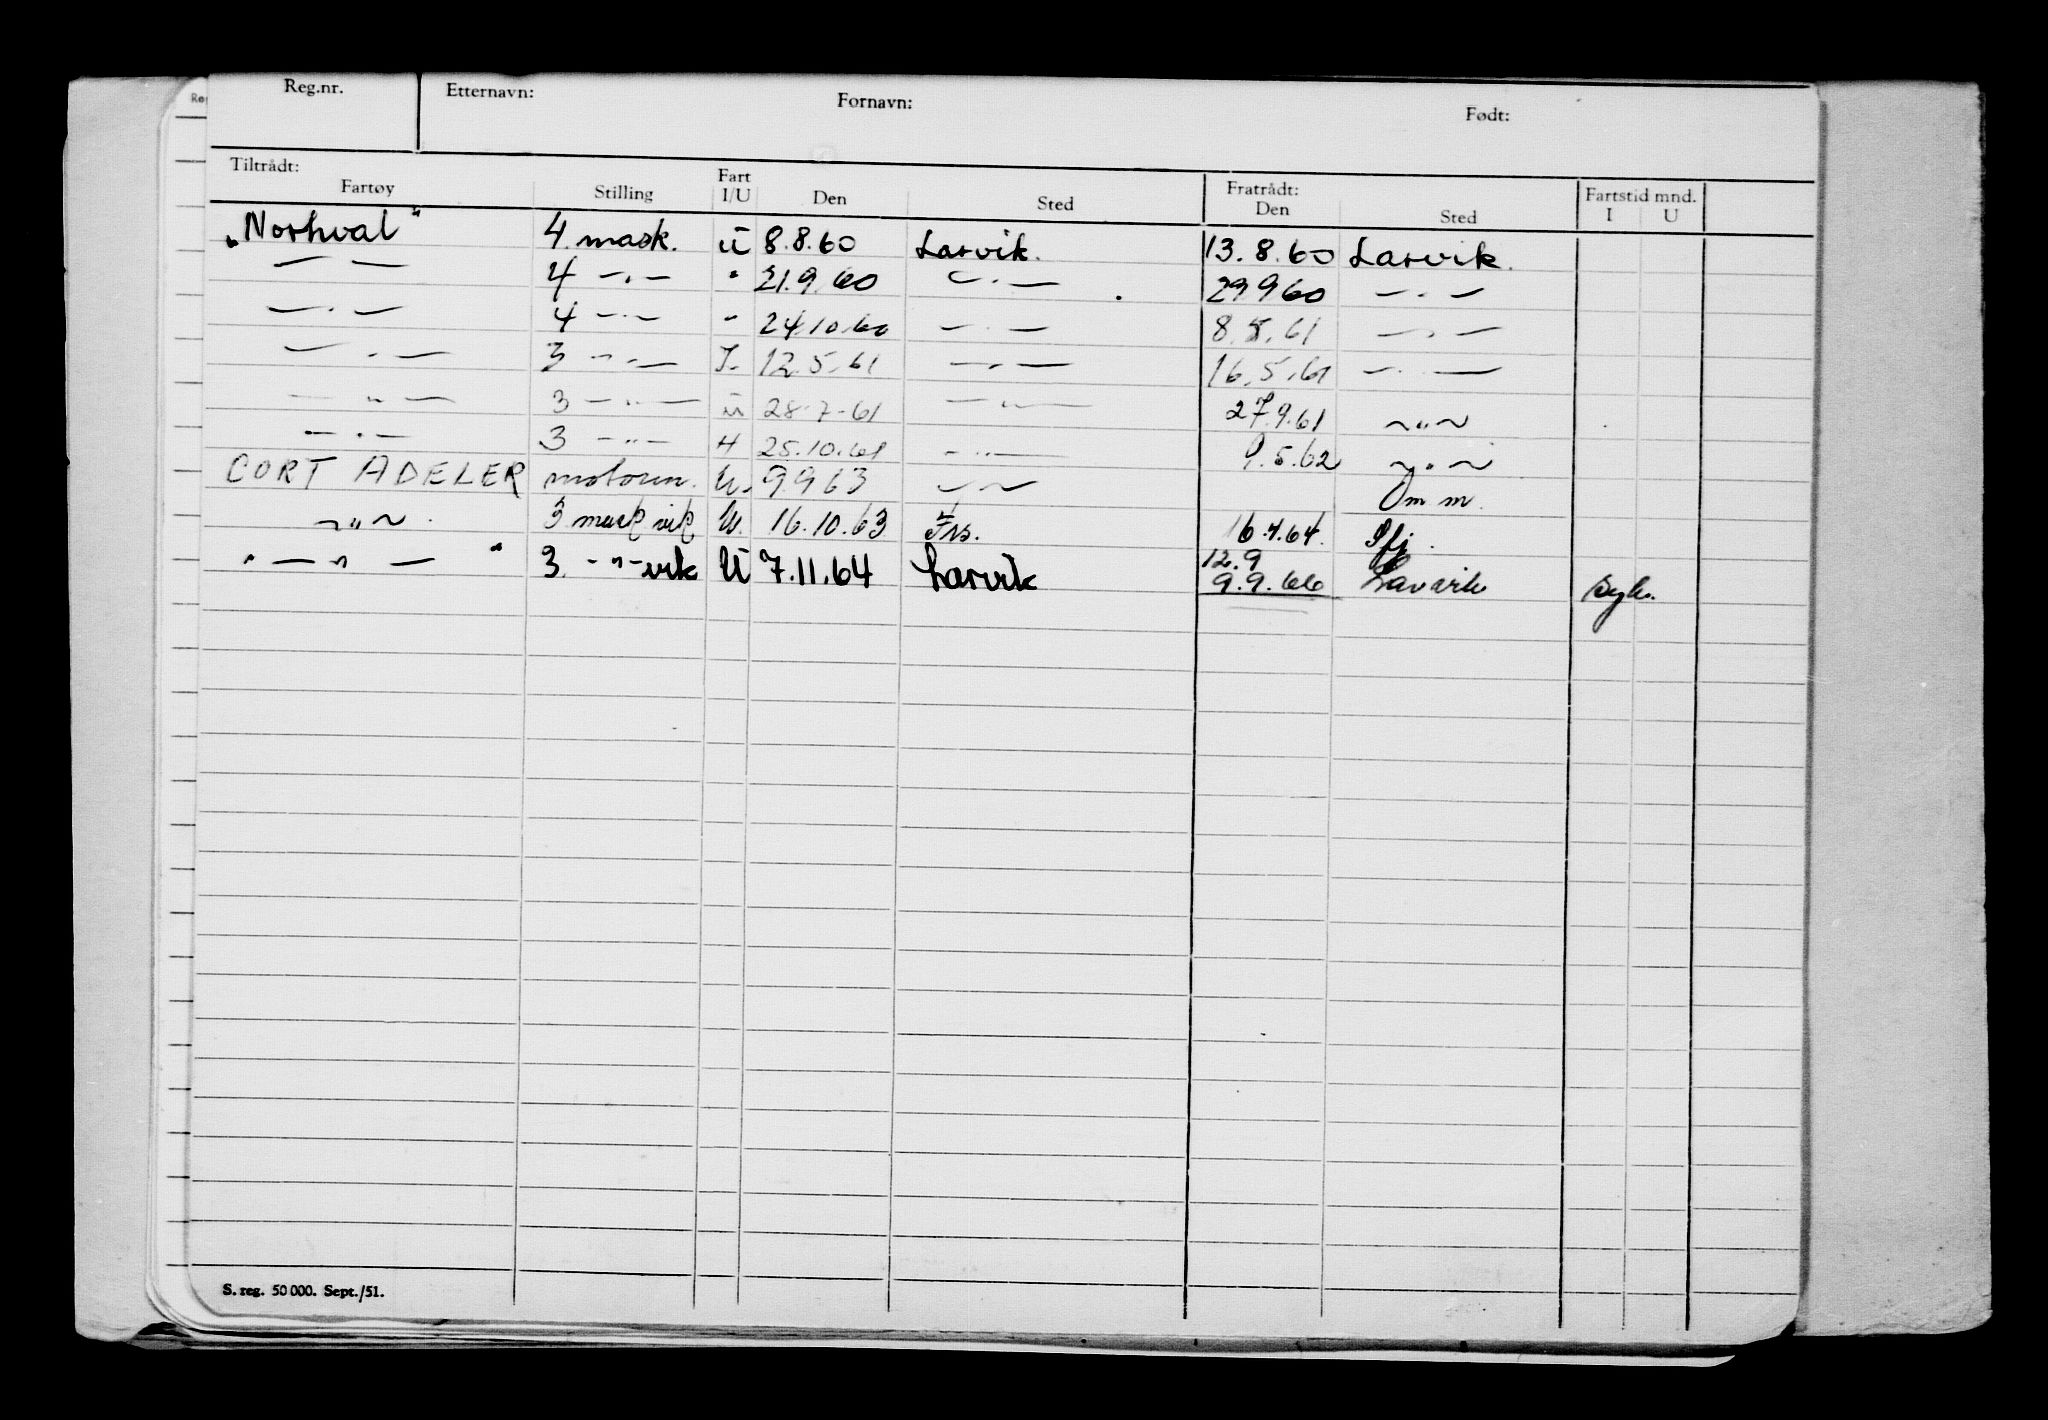 Reg.nr. Etternavn: Fornavn: Født:
Tiltrådt: Fratrådt:
Fartøy Stilling Fart I/U Den Sted Den Sted Fartstid mnd. I U
"Norhval" 4 mask. U 8.8.60 Larvik. 13.8.60 Larvik.
— — 4 —.— " 21.9.60 —.— 29.9.60 —.—
—.— 4 —.— " 24.10.60 —.— 8.5.61 —.—
—.— 3 —.— I. 12.5.61 —.— 16.5.61 —.—
—"— 3 —"— U 28.7.61 —"— 27.9.61 —"—
—.— 3 —"— 25.10.61 —"— 9.5.62 —"—
CORT ADELER motorm. U. 9.9.63 —"— Om m.
—"— 3 mask vik U. 16.10.63 16.4.64.
" —"— " 3. —"— vik U 7.11.64 Larvik 12.9 9.9.66 Larvik syk.
S. reg. 50 000. Sept./51.